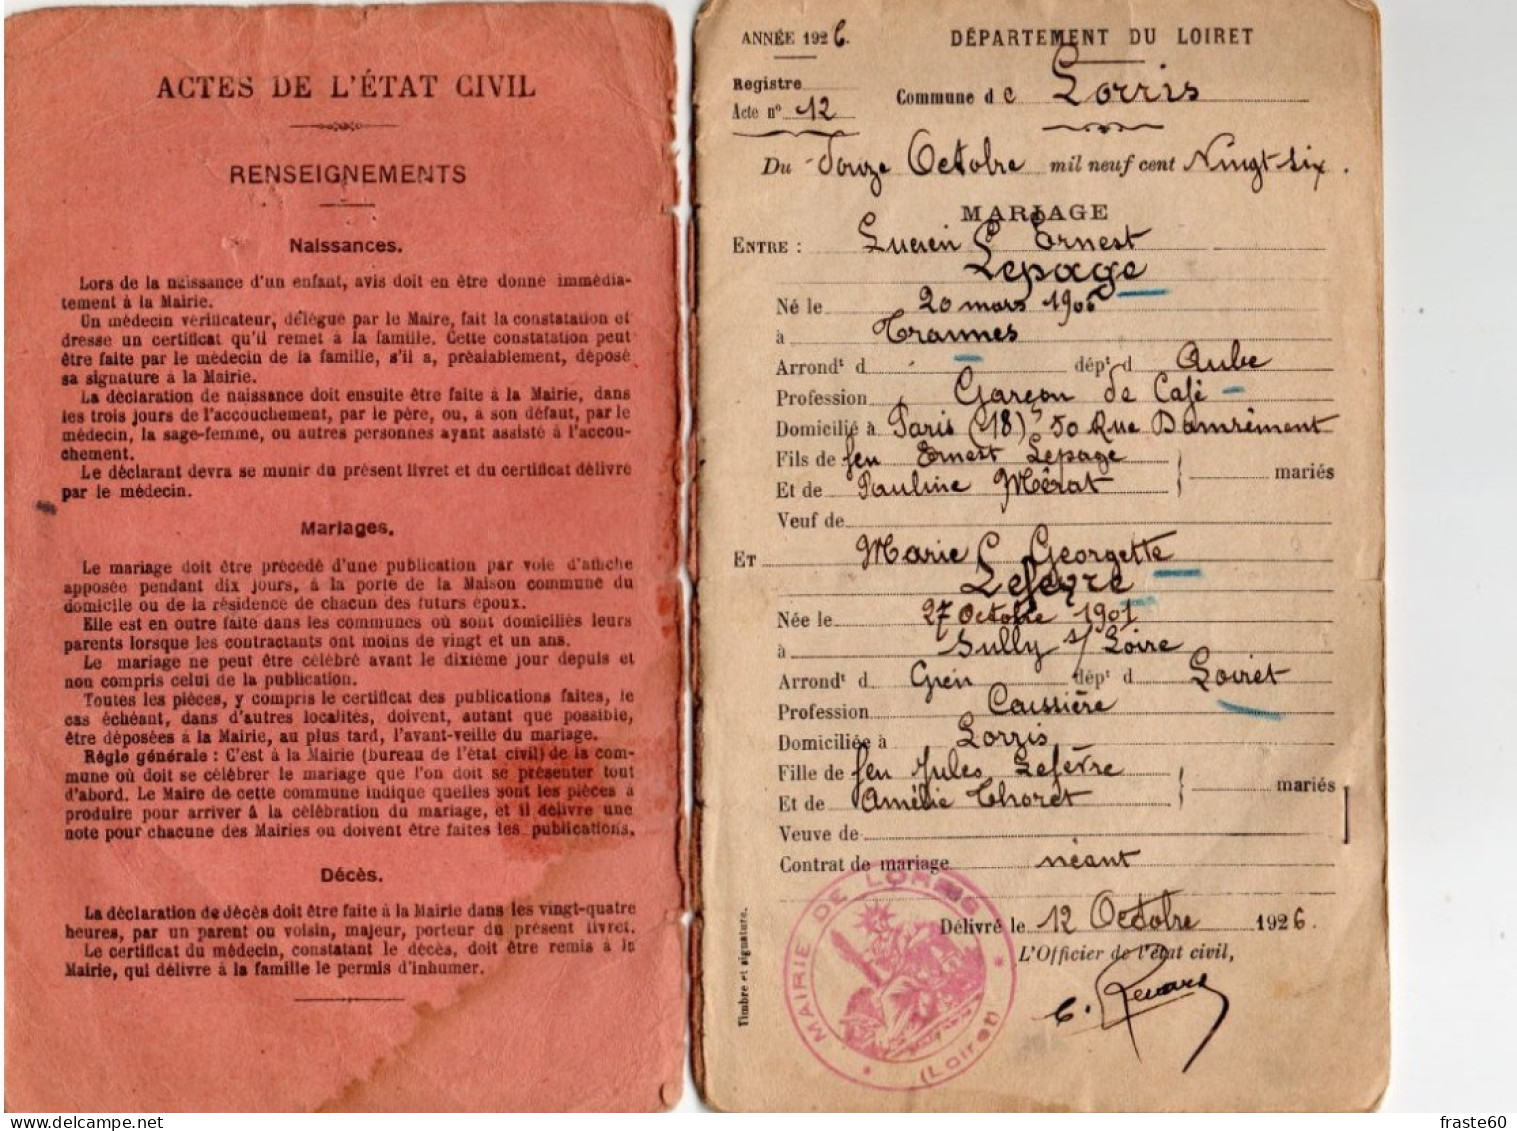 ACTES DE L'ÉTAT CIVIL
RENSEIGNEMENTS
Naissances.
Lors de la naissance d'un enfant, avis doit en être donné immédia-
tement à la Mairie.
Un médecin vérificateur, délégué par le Maire, fait la constatation et
dresse un certificat qu'il remet à la famille. Cette constatation peut
être faite par le médecin de la famille, s'il a, préalablement, déposé
sa signature à la Mairie.
La déclaration de naissance doit ensuite être faite à la Mairie, dans
les trois jours de l'accouchement, par le père, ou, à son défaut, par le
médecin, la sage-femme, ou autres personnes ayant assisté à l'accou-
chement.
Le déclarant devra se munir du présent livret et du certificat délivré
par le médecin.
Mariages.
Le mariage doit être précédé d'une publication par voie d'affiche
apposée pendant dix jours, à la porte de la Maison commune du
domicile ou de la résidence de chacun des futurs époux.
Elle est en outre faite dans les communes où sont domiciliés leurs
parents lorsque les contractants ont moins de vingt et un ans.
Le mariage ne peut être célébré avant le dixième jour depuis et
non compris celui de la publication.
Toutes les pièces, y compris le certificat des publications faites, le
cas échéant, dans d'autres localités, doivent, autant que possible,
être déposées à la Mairie, au plus tard, l'avant-veille du mariage.
Règle générale : C'est à la Mairie (bureau de l'état civil) de la com-
mune où doit se célébrer le mariage que l'on doit se présenter tout
d'abord. Le Maire de cette commune indique quelles sont les pièces à
produire pour arriver à la célébration du mariage, et il délivre une
note pour chacune des Mairies ou doivent être faites les publications.
Décès.
La déclaration de décès doit être faite à la Mairie dans les vingt-quatre
heures, par un parent ou voisin, majeur, porteur du présent livret.
Le certificat du médecin, constatant le décès, doit être remis à la
Mairie, qui délivre à la famille le permis d'inhumer.
ANNÉE 1926.
DÉPARTEMENT DU LOIRET
Registre
Acte n° 12
Commune de Lorris
Du Douze Octobre mil neuf cent Vingt six.
MARIAGE
ENTRE : Lucien Ernest
Lepage
Né le 20 mars 1906
à Trannes
Arrondt d dépt d Aube
Profession Garçon de Café
Domicilié à Paris (18) 50 Rue Damrémont
Fils de feu Ernest Lepage
Et de Pauline Mérat mariés
Veuf de
ET Marie Georgette
Lefèvre
Née le 27 Octobre 1901
à Sully s/ Loire
Arrondt d Gien dépt d Loiret
Profession Caissière
Domiciliée à Lorris
Fille de feu Jules Lefèvre
Et de Amélie Thoret mariés
Veuve de
Contrat de mariage néant
Délivré le 12 Octobre 1926.
L'Officier de l'état civil,
Timbre et signature.
MAIRIE DE LORRIS
(Loiret)
fraste60